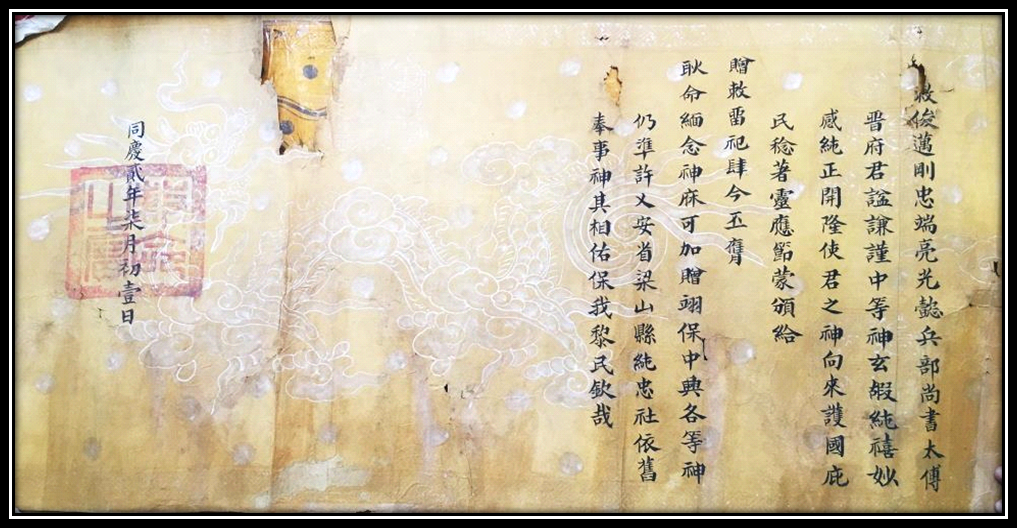 敕俊邁剛忠端亮光懿兵部尚書太傅
晋府君謚謙謹中等神玄嘏純禧妙
感純正開隆使君之神向來護國庇
民稔著靈應節蒙頒給
贈敕畱祀肆今丕膺
耿命緬念神庥可加贈翊保中興各等神
仍準許乂安省梁山縣純忠社依舊
奉事神其相佑保我黎民欽哉
同慶貳年柒月初壹日